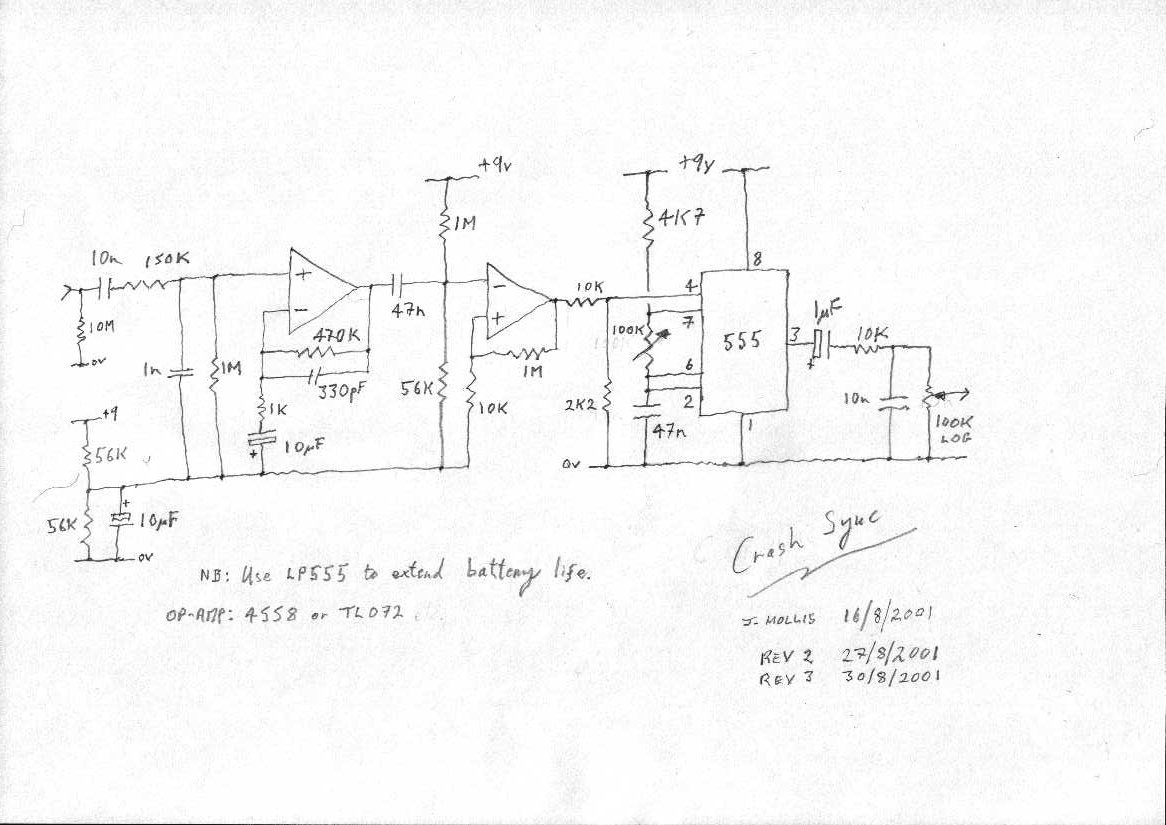 +9v
+9v
1M
4K7
8
10n
150K
4
10K
+
-
-
+
47n
7
100K
555
3
1µF
+
10K
10M
0V
470K
1n
1M
330pF
1M
6
56K
10K
2K2
2
47n
1
10n
100K
LOG
1K
10µF
+
+9
56K
0V
+
56K
10µF
0V
Crash Sync
NB: Use LP555 to extend battery life.
OP-AMP: 4558 or TL072
J. HOLLIS 16/8/2001
REV 2 27/8/2001
REV 3 30/8/2001